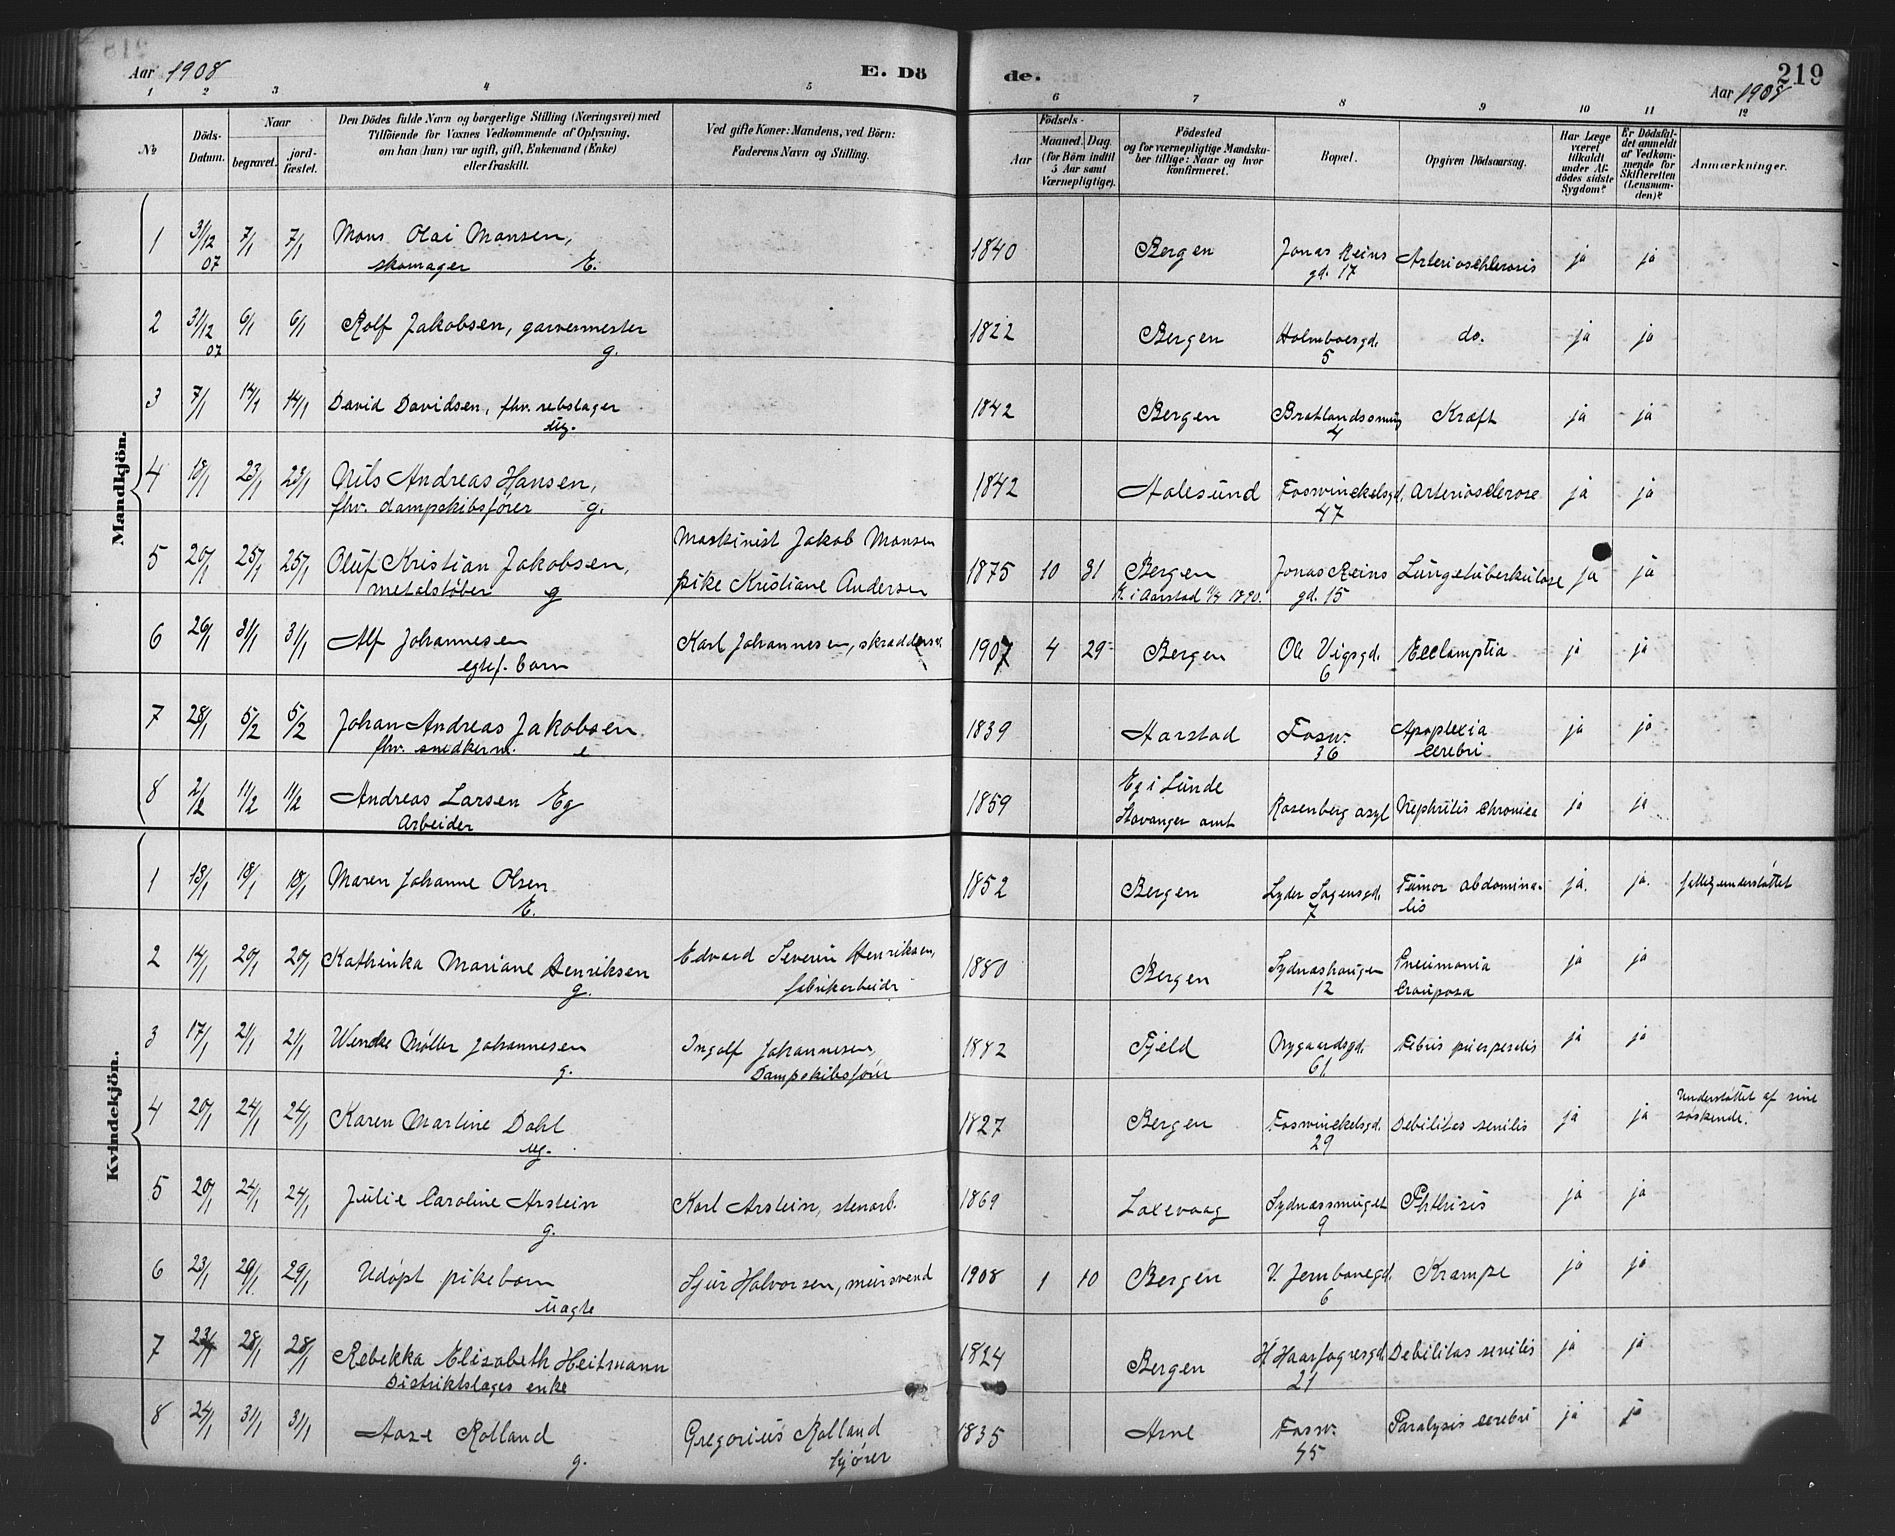 Aar 1908
E. Dö
de.
219
Aar 1908
1 2 3 4 5 6 7 8 9 10 11 12
№
Döds-Datum.
Naar
begravet.
jord-fæstet.
Den Dödes fulde Navn og borgerlige Stilling (Næringsvei) med
Tilföiende for Voxnes Vedkommende af Oplysning,
om han (hun) var ugift, gift, Enkemand (Enke)
eller fraskilt.
Ved gifte Koner: Mandens, ved Börn:
Faderens Navn og Stilling.
Födsels-
Aar
Maaned. Dag.
(for Börn indtil
5 Aar samt
Værnepligtige).
Födested
og for værnepligtige Mandskaber tillige: Naar og hvor
konfirmeret.
Bopæl.
Opgiven Dödsaarsag.
Har Læge
været
tilkaldt
under Afdödes sidste
Sygdom?
Er Dödsfaldet anmeldt
af Vedkommende for
Skifteretten
(Lensmanden)?
Anmærkninger.
Mandkjön.
1 31/12 07 7/1 7/1 Mons Olai Monsen, 1840 Bergen Jonas Reins Arteriosclerosis ja ja
skomager E. gd. 17
2 31/12 07 6/1 6/1 Rolf Jakobsen, garvermester 1822 Bergen Holmboesgd. do. ja ja
g. 5
3 7/1 14/1 14/1 David Davidsen, fhv. rebslager 1842 Bergen Bratlandssmug Kræft ja ja
ug. 4
4 18/1 23/1 23/1 Nils Andreas Hansen, 1842 Aalesund Fosswinckelsgd. Arteriosclerose ja ja
fhv. dampskibsfører g. 47
Maskinist Jakob Monsen
5 20/1 25/1 25/1 Oluf Kristian Jakobsen, pike Kristiane Andersen 1875 10 31 Bergen Jonas Reins Lungetuberkulose ja ja
metalstøber g K. i Aarstad 1890. gd. 15
6 26/1 31/1 31/1 Alf Johannesen Karl Johannesen, 1907 4 29 Bergen Ole Vigsgd. Ecclamptia ja ja
egtef. barn 6
7 28/1 5/2 5/2 Johan Andreas Jakobsen 1839 Aarstad Fossw. Apoplexia ja ja
fhv. snedkerm. e 36 cerebri
8 2/2 11/2 11/2 Andreas Larsen Eg 1859 Eg i Lunde Rosenberg asyl Nephritis chronica ja ja
Arbeider Stavanger amt
Kvindekjön.
1 13/1 18/1 18/1 Maren Johanne Olsen 1852 Bergen Lyder Sagensgd. Tumor abdomina- ja. ja. fattigunderstøttet
E. 7 lis
2 14/1 20/1 20/1 Kathinka Mariane Henriksen Edvard Severin Henriksen, 1880 Bergen Sydnæshaugen Pneumonia ja ja
g. fabrikarbeidr 12 crouposa
3 17/1 21/1 21/1 Wencke Møller Johannesen Ingolf Johannesen, 1882 Fjeld Nygaardsgd. Febris puerperalis ja ja
g. Dampskibsfører 61
4 20/1 24/1 24/1 Karen Martine Dahl 1827 Bergen Fosswinckelsgd. Debilitas senilis ja ja Understøttet af sine
ug. 29 søskende.
5 20/1 24/1 24/1 Julie Caroline Arstein Karl Arstein, stenarb. 1869 Laxevaag Sydnæssmuget Phthisis ja ja
g. 9
6 23/1 29/1 29/1 Udøpt pikebarn Sjur Halvorsen, mursvend 1908 1 10 Bergen V. Jernbanegd. Krampe ja ja
uægte 6
7 23/1 28/1 28/1 Rebekka Elisabeth Heitmann 1824 Bergen H Haarfagresgd. Debilitas senilis ja ja
Distriktslæges enke 21
8 24/1 31/1 31/1 Aase Rolland Gregorius Rolland 1835 Arne Fossw. Paralysis cerebri ja ja
g. kjører 45